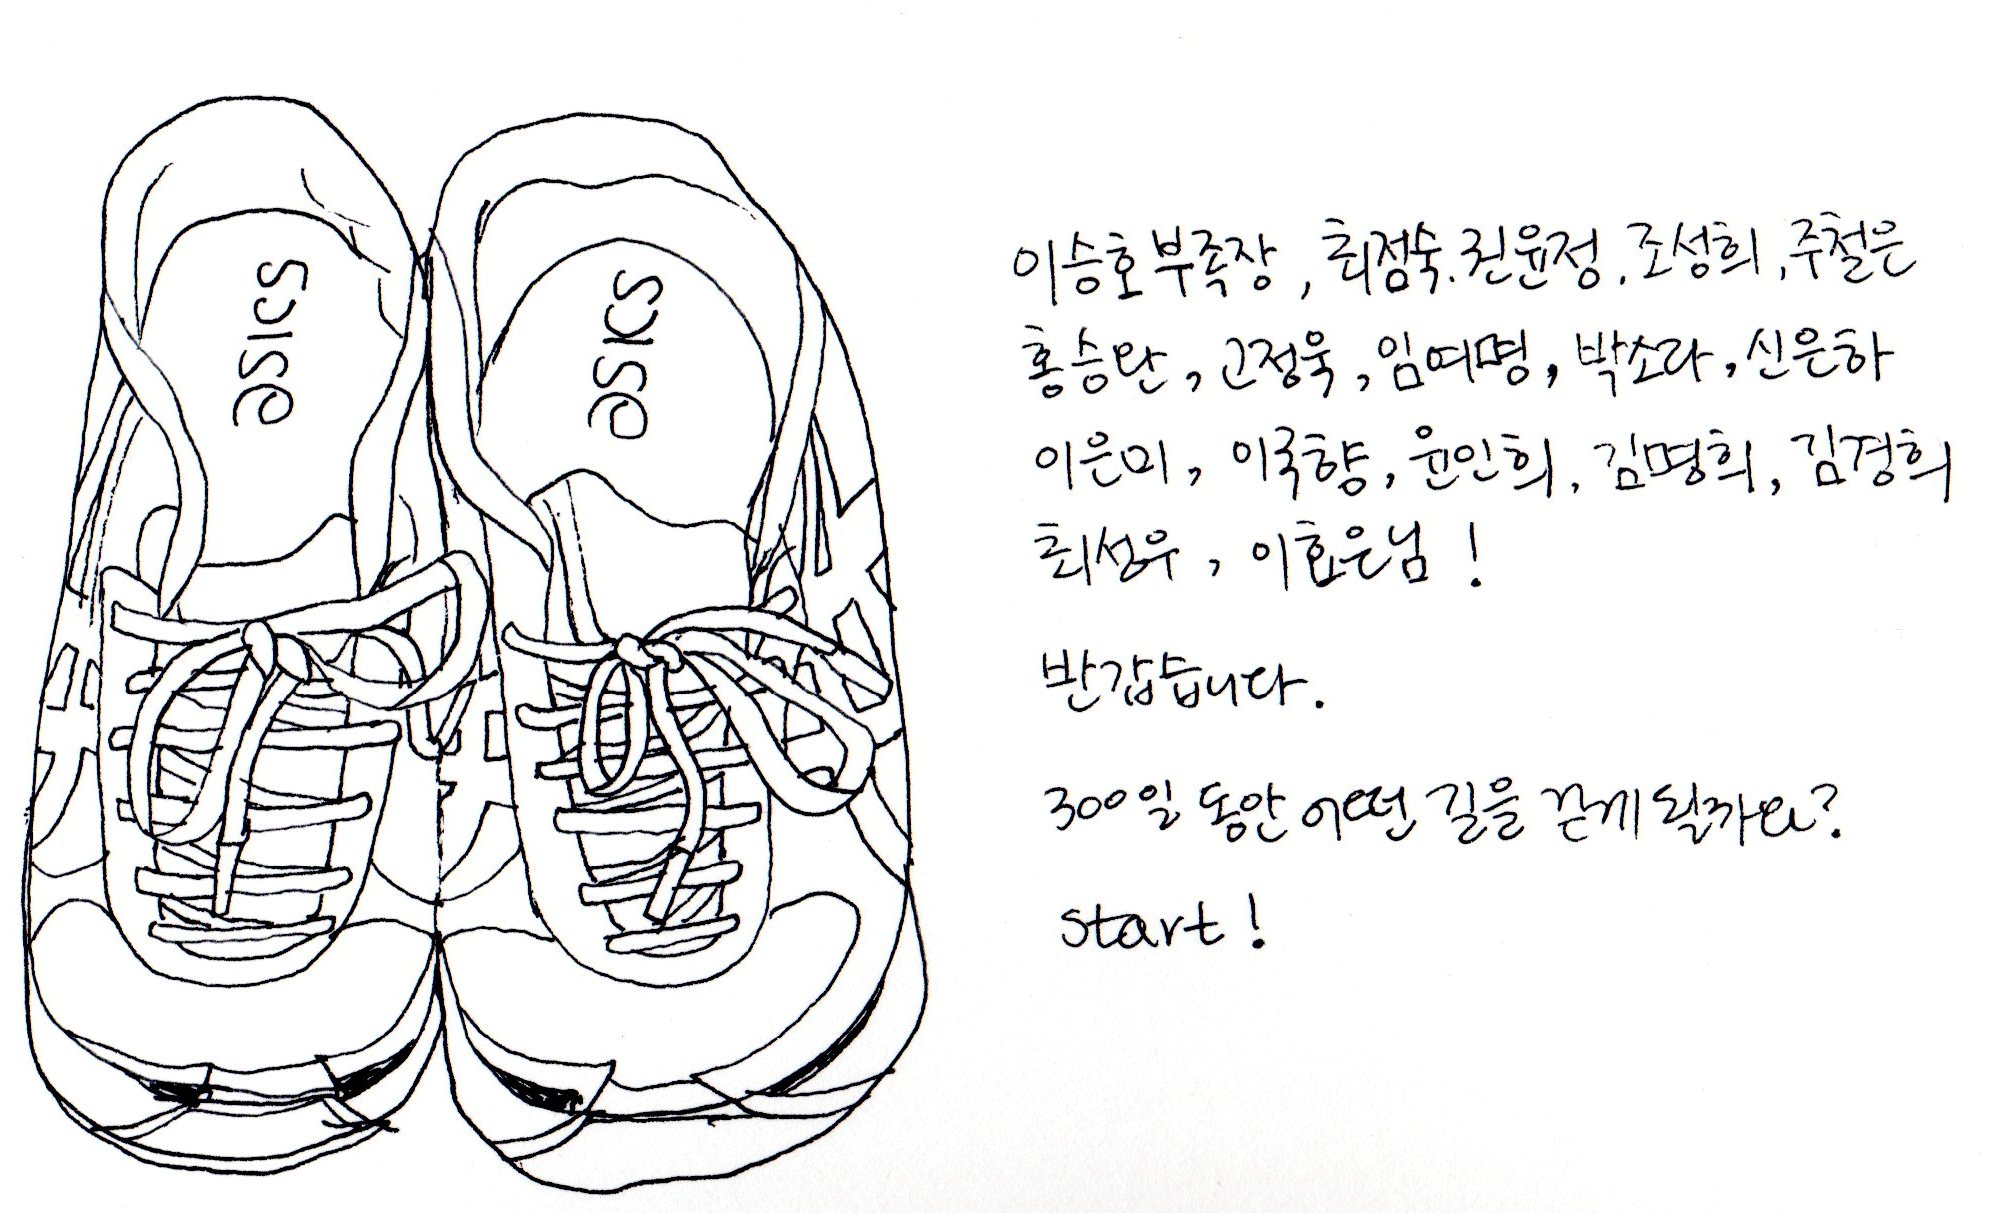 asics
asics
이승호 부족장, 최점숙. 진윤정. 조성희, 주철은
홍승완, 고정욱, 임여명, 박소라, 신은하
이은미, 이국향, 윤인희, 김명희, 김경희
최성우, 이효은님!
반갑습니다.
300일 동안 어떤 길을 걷게 될까요?
start!